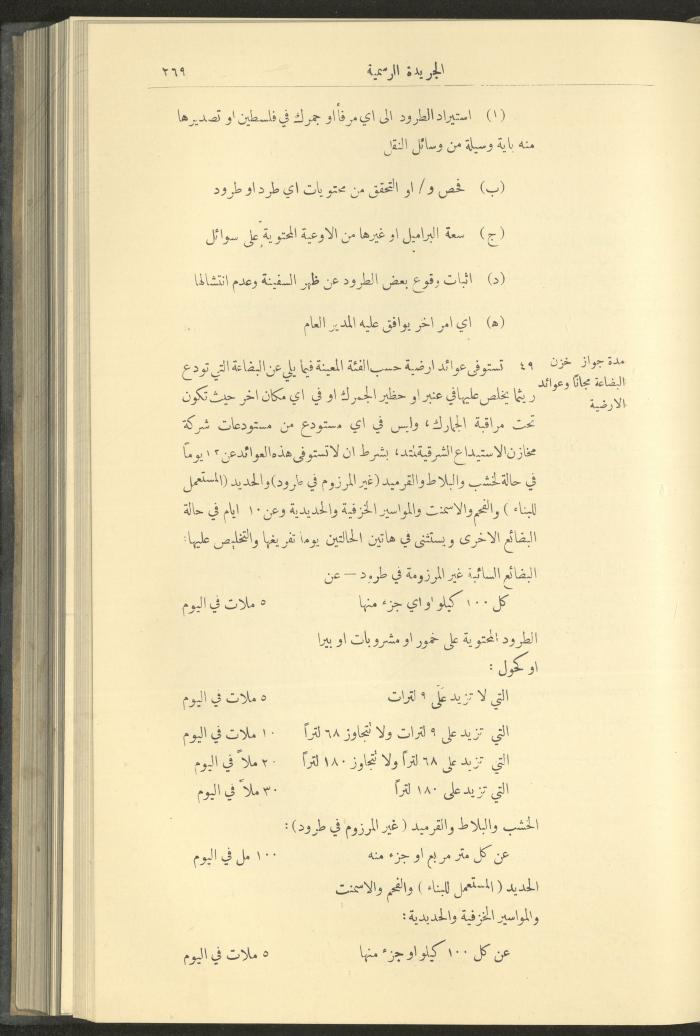 الجريدة الرسمية ٢٦٩
(ا) استيراد الطرود الى اي مرفأ او جمرك في فلسطين او تصديرها
منه باية وسيلة من وسائل النقل
(ب) فحص و/ او التحقق من محتويات اي طرد او طرود
(ج) سعة البراميل او غيرها من الاوعية المحتوية على سوائل
(د) اثبات وقوع بعض الطرود عن ظهر السفينة وعدم انتشالها
(ه) اي امر اخر يوافق عليه المدير العام
مدة جواز خزن
البضاعة مجانًا وعوائد
الارضية
٤٩ تستوفى عوائد ارضية حسب الفئة المعينة فيما يلي عن البضاعة التي تودع
ريثما يخلص عليها في عنبر او حظير الجمرك او في اي مكان اخر حيث تكون
تحت مراقبة الجمارك، وليس في اي مستودع من مستودعات شركة
مخازن الاستيداع الشرقية لمتد، بشرط ان لا تستوفى هذه العوائد عن ١٢ يومًا
في حالة الخشب والبلاط والقرميد (غير المرزوم في طرود) والحديد (المستعمل
للبناء) والفحم والاسمنت والمواسير الخزفية والحديدية وعن ١٠ ايام في حالة
البضائع الاخرى ويستثنى في هاتين الحالتين يوما تفريغها والتخليص عليها:
البضائع السائبة غير المرزومة في طرود — عن
كل ١٠٠ كيلو او اي جزء منها ٥ ملات في اليوم
الطرود المحتوية على خمور او مشروبات او بيرا
او كحول:
التي لا تزيد على ٩ لترات ٥ ملات في اليوم
التي تزيد على ٩ لترات ولا تتجاوز ٦٨ لترًا ١٠ ملات في اليوم
التي تزيد على ٦٨ لترًا ولا تتجاوز ١٨٠ لترًا ٢٠ ملاً في اليوم
التي تزيد على ١٨٠ لترًا ٣٠ ملاً في اليوم
الخشب والبلاط والقرميد (غير المرزوم في طرود):
عن كل متر مربع او جزء منه ١٠٠ مل في اليوم
الحديد (المستعمل للبناء) والفحم والاسمنت
والمواسير الخزفية والحديدية:
عن كل ١٠٠ كيلو او جزء منها ٥ ملات في اليوم